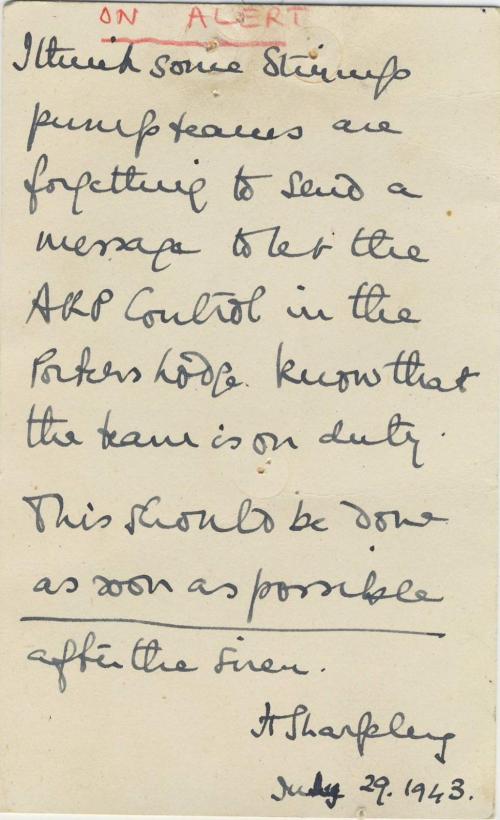 ON ALERT
I think some Stirrup
pump teams are
forgetting to send a
message to let the
ARP Control in the
Porters Lodge know that
the team is on duty.
This should be done
as soon as possible
after the siren.
H Sharpley
July 29. 1943.